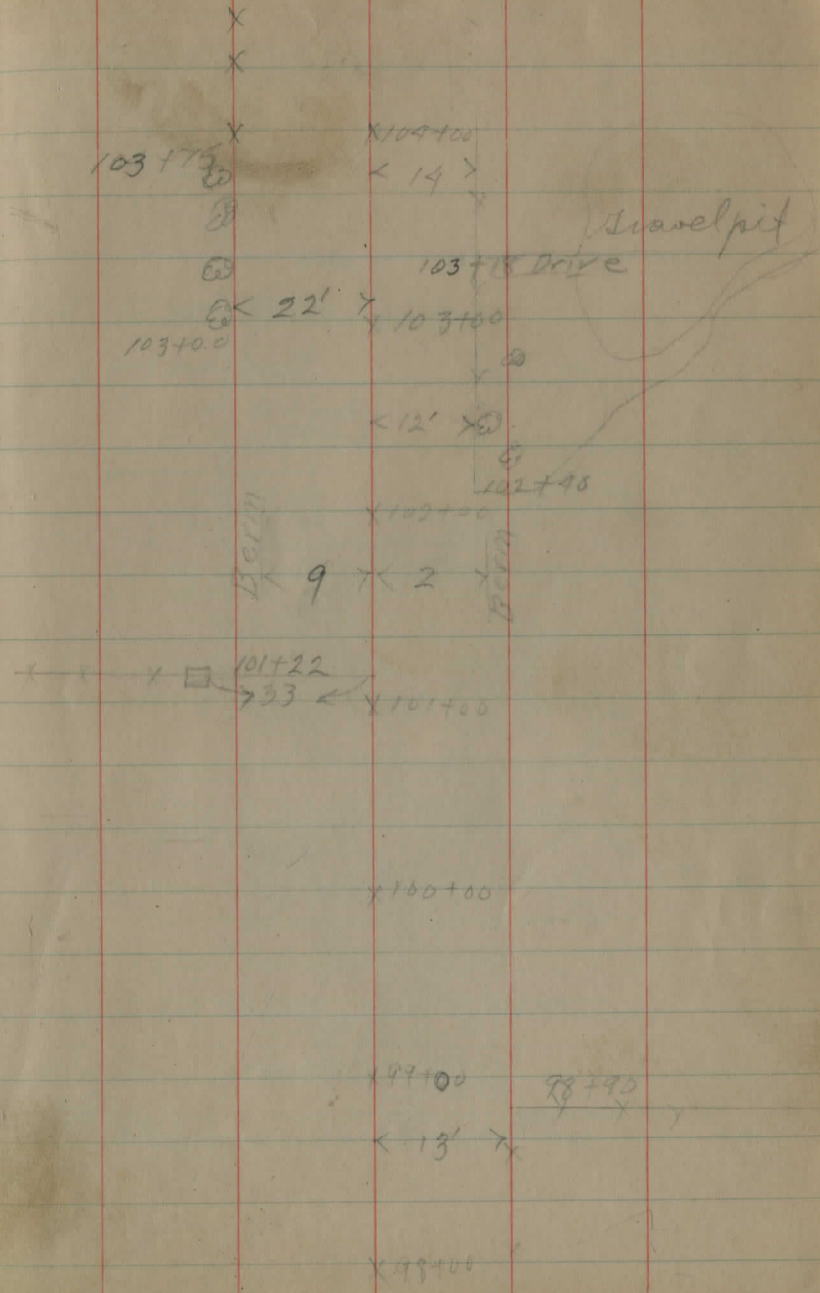 104+00
103+75
14
Gravel pit
103+18 Drive
22'
103+00
103+0.0
12'
102+40
102+00
Berm
9
2
Berm
101+22
33
101+00
100+00
99+00
98+90
13'
98+00